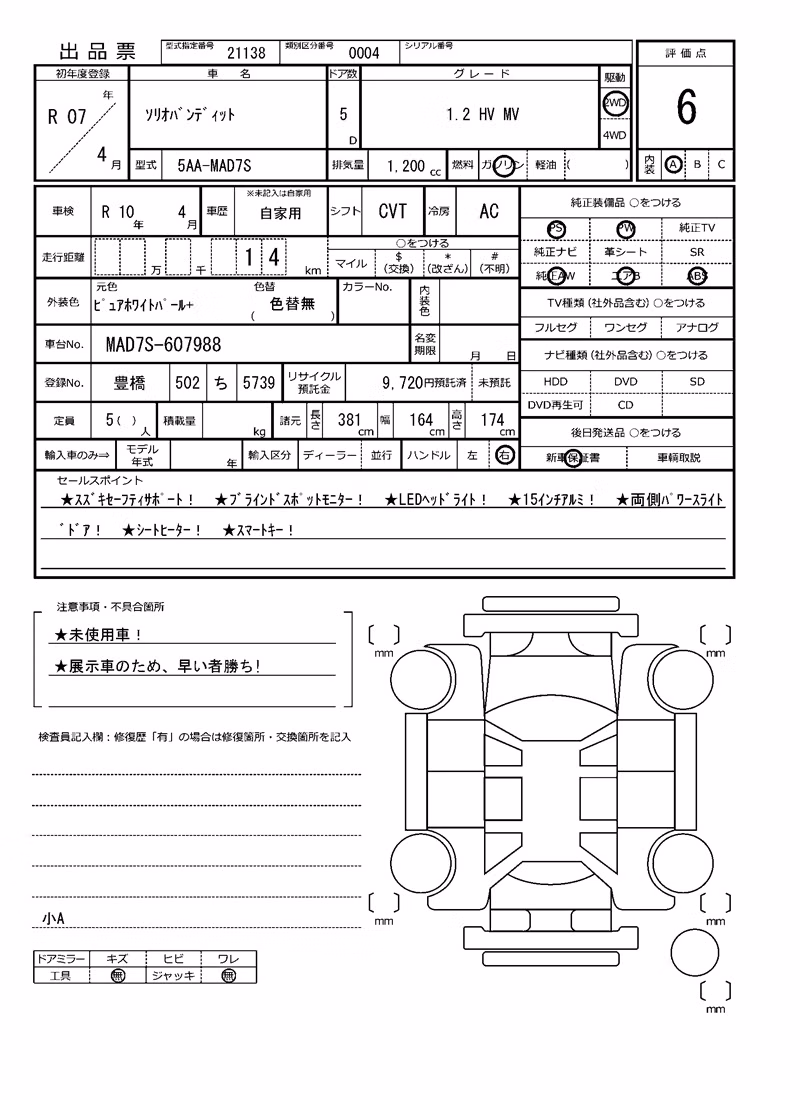 出品票 型式指定番号 21138 類別区分番号 0004 シリアル番号
評価点
6
内装 A B C
初年度登録 車名 ドア数 グレード 駆動
R 07 年 4 月 ソリオバンディット 5 D 1.2 HV MV 2WD
4WD
型式 5AA-MAD7S 排気量 1,200 cc 燃料 ガソリン 軽油 ( )
車検 R 10 年 4 月 車歴 ※未記入は自家用 自家用 シフト CVT 冷房 AC
走行距離 万 千 1 4 km ○をつける
マイル $ (交換) * (改ざん) # (不明)
外装色 元色 ピュアホワイトパール+ 色替 ( 色替無 ) カラーNo. 内装色
車台No. MAD7S-607988 名変期限 月 日
登録No. 豊橋 502 ち 5739 リサイクル預託金 9,720円預託済 未預託
定員 5 ( ) 人 積載量 kg 諸元 長さ 381 cm 幅 164 cm 高さ 174 cm
輸入車のみ⇒ モデル年式 年 輸入区分 ディーラー 並行 ハンドル 左 右
純正装備品 ○をつける
PS PW 純正TV
純正ナビ 革シート SR
純正AW エアB ABS
TV種類 (社外品含む) ○をつける
フルセグ ワンセグ アナログ
ナビ種類 (社外品含む) ○をつける
HDD DVD SD
DVD再生可 CD
後日発送品 ○をつける
新車保証書 車輌取説
セールスポイント
★スズキセーフティサポート! ★ブラインドスポットモニター! ★LEDヘッドライト! ★15インチアルミ! ★両側パワースライト
゛ドア! ★シートヒーター! ★スマートキー!
注意事項・不具合箇所
★未使用車!
★展示車のため、早い者勝ち!
検査員記入欄:修復歴「有」の場合は修復箇所・交換箇所を記入
小A
ドアミラー キズ ヒビ ワレ
工具 無 ジャッキ 無
mm
mm
mm
mm
mm